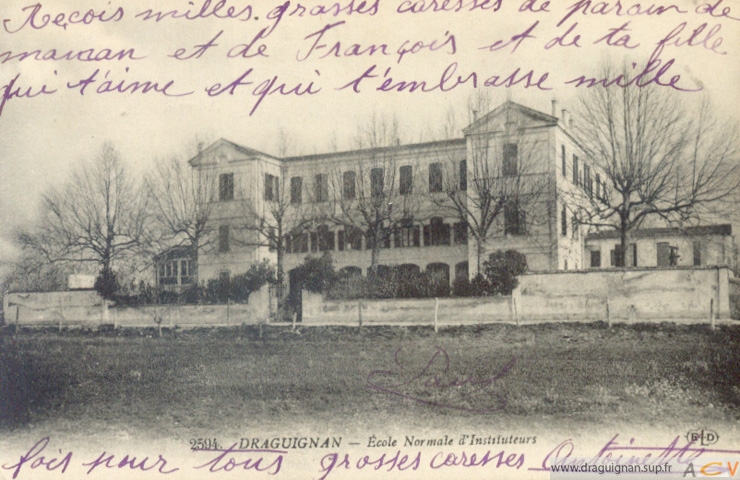 Reçois milles grosses caresses de parain de
maman et de François et de ta fille
qui t'aime et qui t'embrasse mille
2594. DRAGUIGNAN — École Normale d'Instituteurs
ELD
fois pour tous grosses caresses Antoinette
www.draguignan.sup.fr
ACV